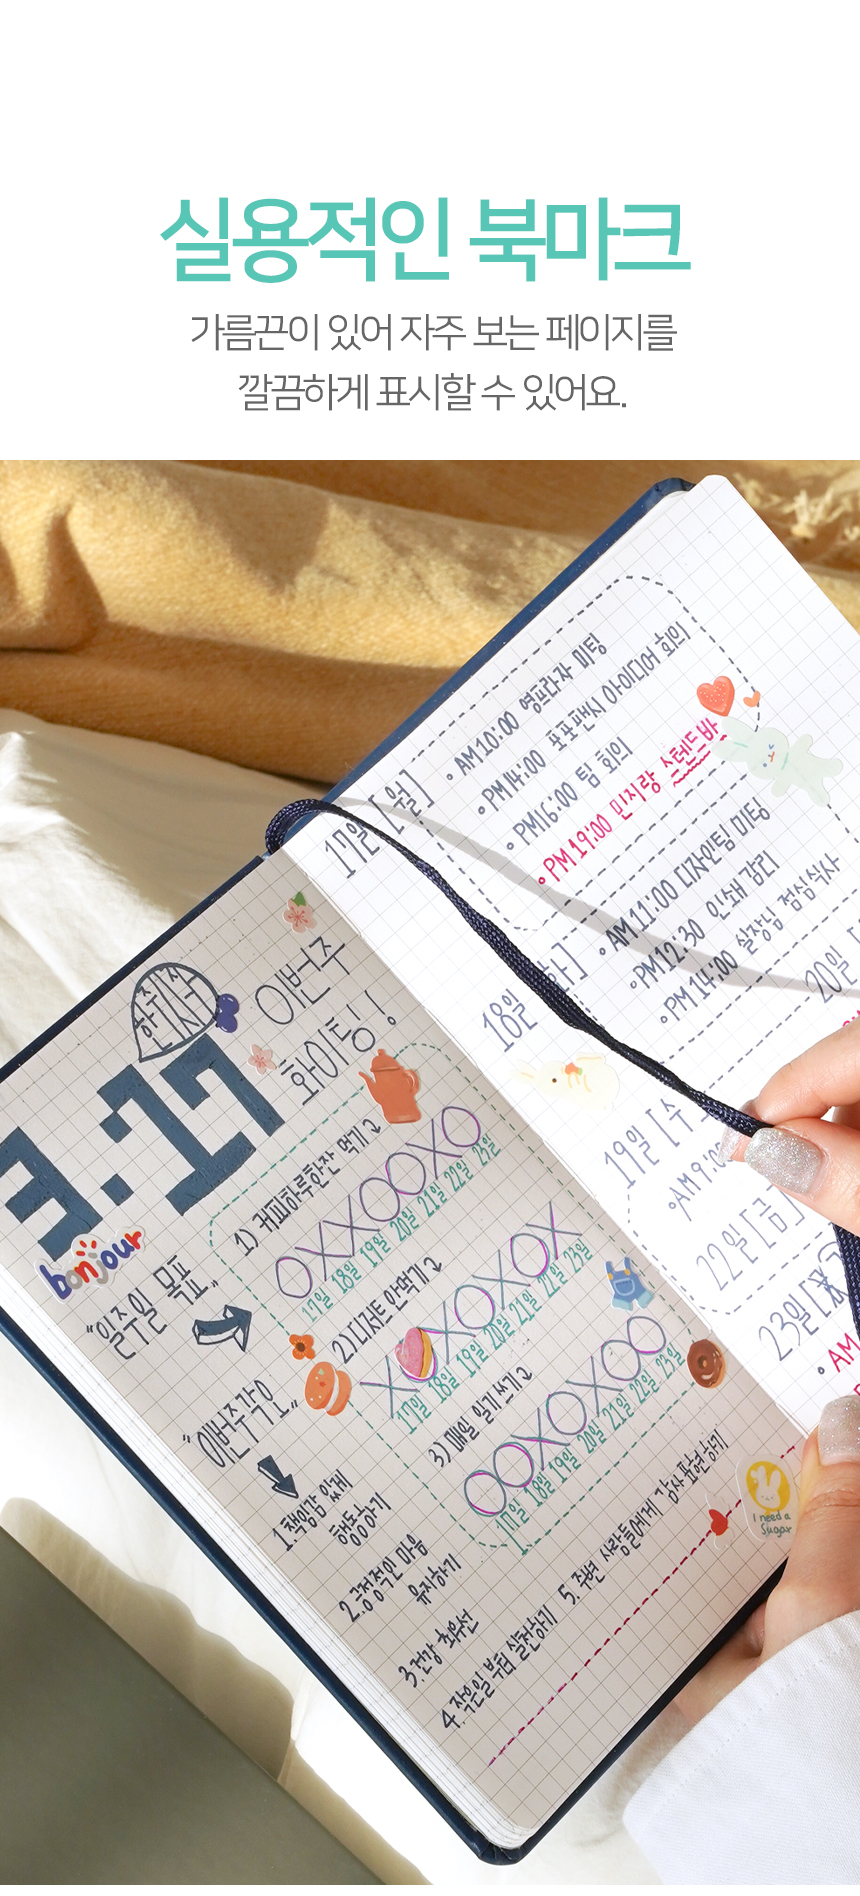 실용적인 북마크
가름끈이 있어 자주 보는 페이지를
깔끔하게 표시할 수 있어요.
한주의 시작
3.17
이번주
화이팅!
bonjour
"일주일 목표"
1) 커피하루한잔 먹기
OXXOOXO
17일 18일 19일 20일 21일 22일 23일
2) 디저트 안먹기
17일 18일 19일 20일 21일 22일 23일
3) 매일 일기 쓰기
OOXOXOO
17일 18일 19일 20일 21일 22일 23일
"이번주각오"
1. 책임감 있게
행동하기
2. 긍정적인 마음
유지하기
3. 건강 최우선
4. 작은일 부터 실천하기
5. 주변 사람들에게 감사 표현하기
I need a
Sugar
17일 [월]
• AM10:00 영프라자 미팅
• PM14:00 포포팬시 아이디어 회의
• PM16:00 팀 회의
• PM19:00 민지랑 스탠드바
18일
• AM11:00 디자인팀 미팅
• PM12:30 인쇄 감리
• PM14:00 실장님 점심식사
19일 [수
• AM 9:0
20일
22일 [금]
23일 [
• AM